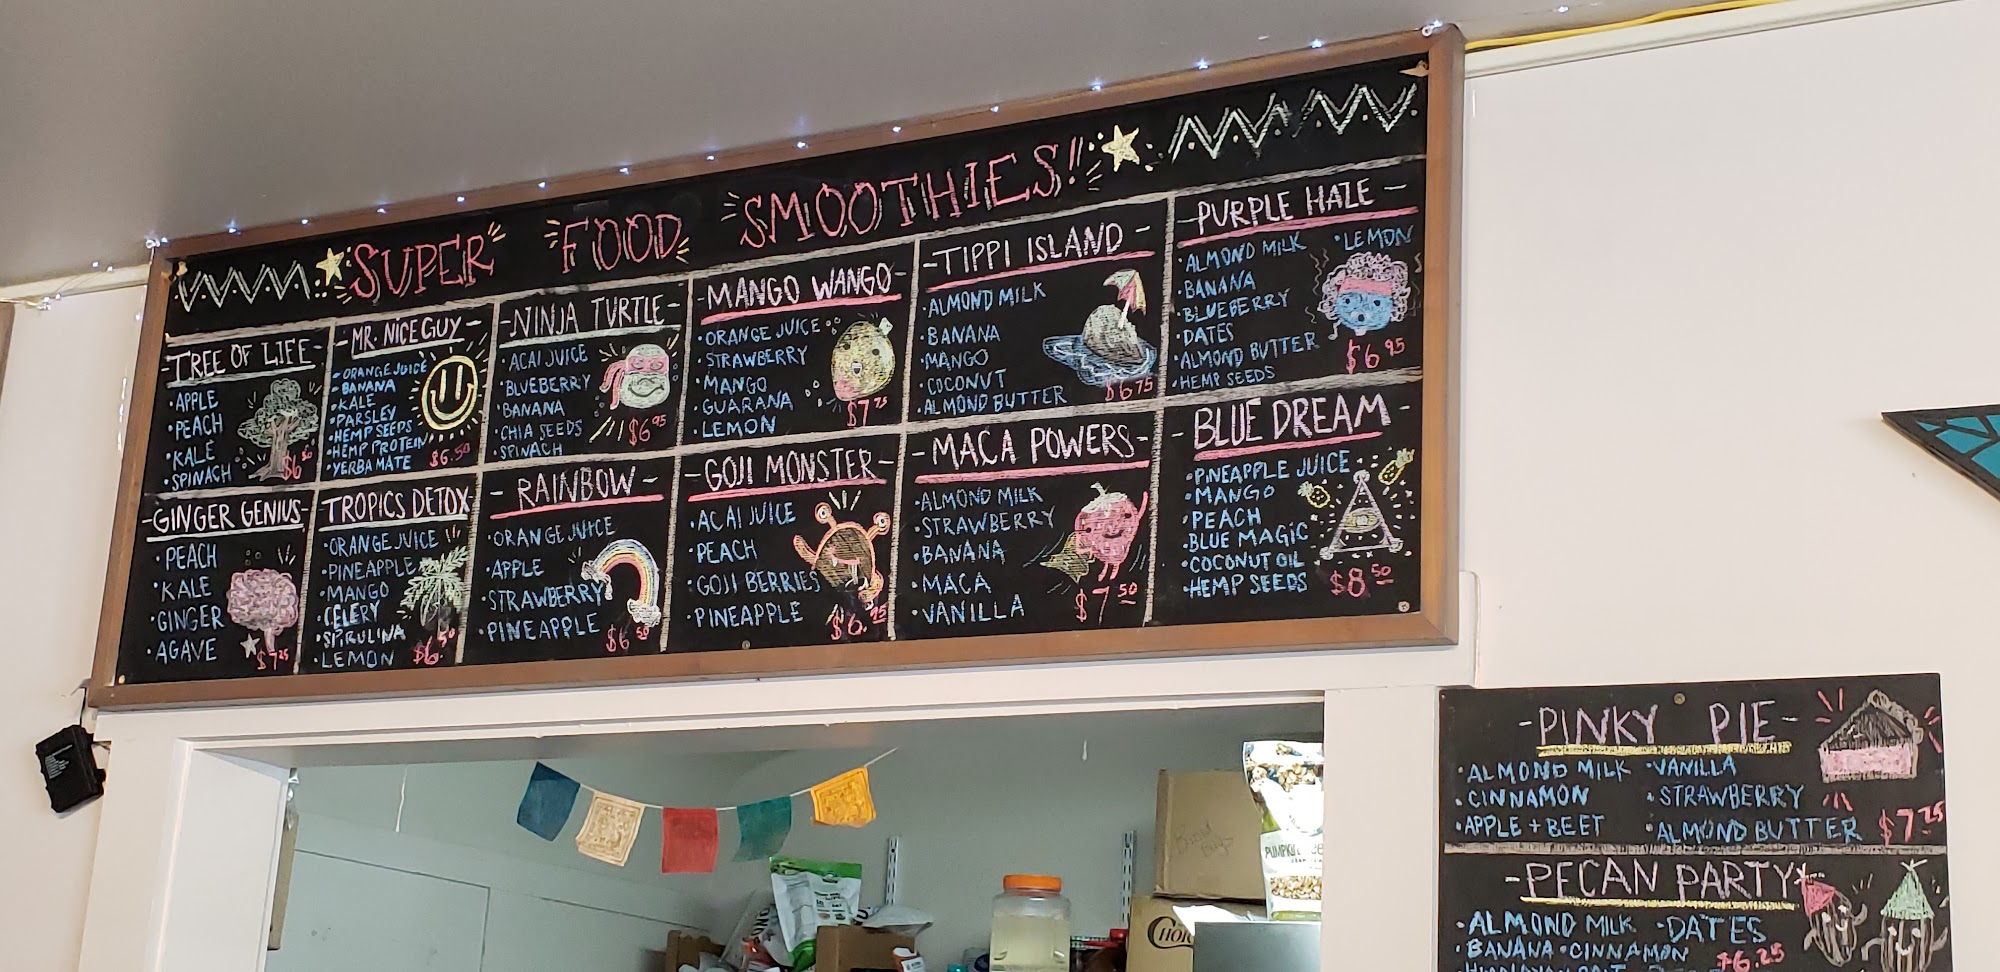 SUPER FOOD SMOOTHIES!!
-TREE OF LIFE-
• APPLE
• PEACH
• KALE
• SPINACH
$6.50
-MR. NICE GUY-
• ORANGE JUICE
• BANANA
• KALE
• PARSLEY
• HEMP SEEDS
• HEMP PROTEIN
• YERBA MATE
$6.50
-NINJA TURTLE-
• ACAI JUICE
• BLUEBERRY
• BANANA
• CHIA SEEDS
• SPINACH
$6.95
-MANGO WANGO-
• ORANGE JUICE
• STRAWBERRY
• MANGO
• GUARANA
• LEMON
$7.75
-TIPPI ISLAND-
• ALMOND MILK
• BANANA
• MANGO
• COCONUT
• ALMOND BUTTER
$6.75
-PURPLE HAZE-
• ALMOND MILK • LEMON
• BANANA
• BLUEBERRY
• DATES
• ALMOND BUTTER
• HEMP SEEDS
$6.95
-GINGER GENIUS-
• PEACH
• KALE
• GINGER
• AGAVE
$7.25
TROPICS DETOX
• ORANGE JUICE
• PINEAPPLE
• MANGO
• CELERY
• SPIRULINA
• LEMON
$6.50
-RAINBOW-
• ORANGE JUICE
• APPLE
• STRAWBERRY
• PINEAPPLE
$6.50
-GOJI MONSTER-
• ACAI JUICE
• PEACH
• GOJI BERRIES
• PINEAPPLE
$6.95
-MACA POWERS-
• ALMOND MILK
• STRAWBERRY
• BANANA
• MACA
• VANILLA
$7.50
-BLUE DREAM-
• PINEAPPLE JUICE
• MANGO
• PEACH
• BLUE MAGIC
• COCONUT OIL
• HEMP SEEDS
$8.50
-PINKY PIE-
• ALMOND MILK • VANILLA
• CINNAMON • STRAWBERRY
• APPLE + BEET • ALMOND BUTTER
$7.25
-PECAN PARTY-
• ALMOND MILK • DATES
• BANANA • CINNAMON
$6.25